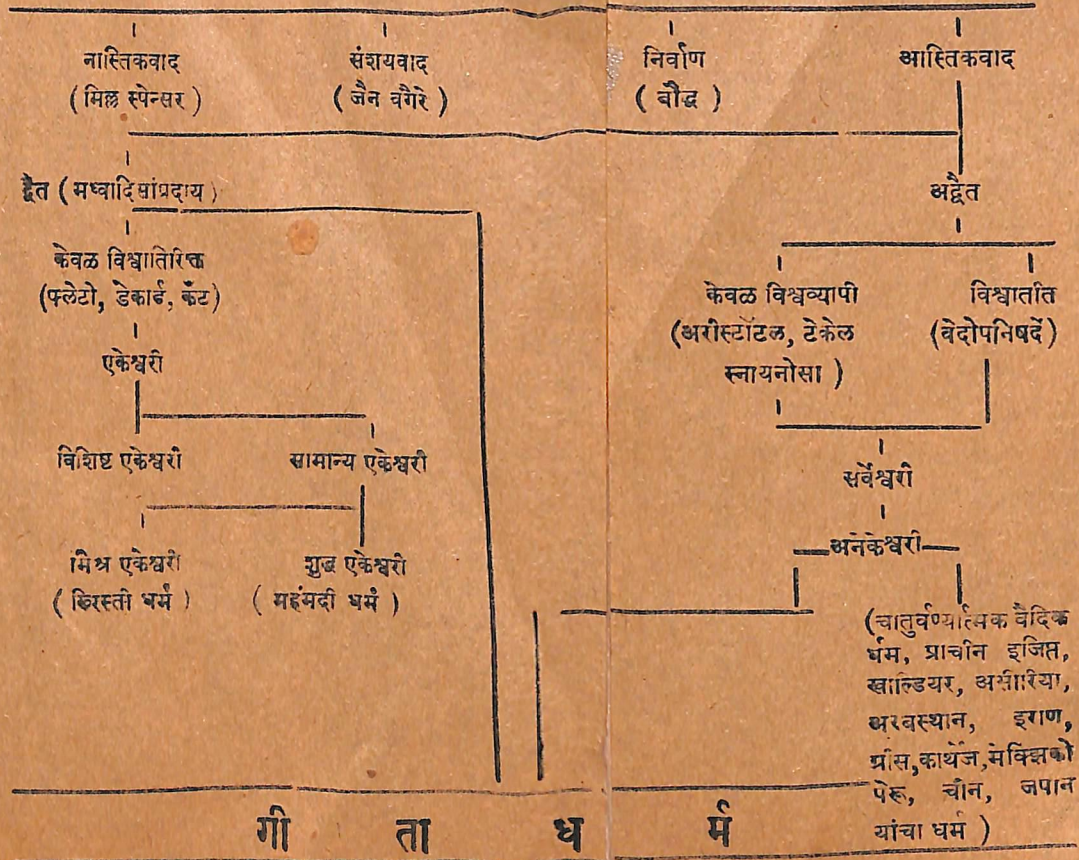 नास्तिकवाद
(मिल्ल स्पेन्सर)
संशयवाद
(जैन वगैरे)
निर्वाण
(बौद्ध)
आस्तिकवाद
द्वैत (मध्वादिसांप्रदाय)
अद्वैत
केवळ विश्वातिरिक्त
(प्लेटो, डेकार्ड, कँट)
एकेश्वरी
विशिष्ट एकेश्वरी
सामान्य एकेश्वरी
मिश्र एकेश्वरी
(ख्रिस्ती धर्म)
शुद्ध एकेश्वरी
(महंमदी धर्म)
केवळ विश्वव्यापी
(अरीस्टॉटल, टेकेल
स्नायनोसा)
विश्वातीत
(वेदोपनिषदें)
सर्वेश्वरी
अनेकेश्वरी
(चातुर्वर्ण्यात्मक वैदिक
धर्म, प्राचीन इजिप्त,
खाल्डियर, असीरिया,
अरबस्थान, इराण,
ग्रीस, कार्थेज, मेक्झिको
पेरू, चीन, जपान
यांचा धर्म)
गी ता ध र्म